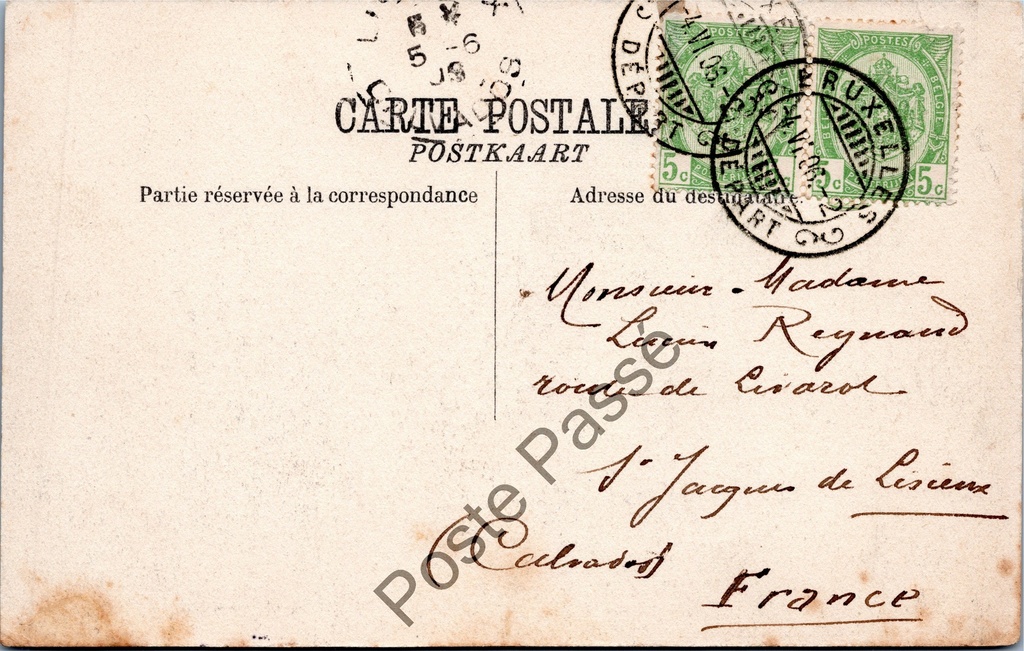 5 - 6
CARTE POSTALE
POSTKAART
Partie réservée à la correspondance
Adresse du destinataire
POSTES
BELGIE
5c
5c
POSTES
BELGIE
5c
5c
DÉPART
4 VI 06
BRUXELLES
4 VI 06
DÉPART
Monsieur - Madame
Lucien Reynaud
route de Livarot
St Jacques de Lisieux
Calvados
France
Poste Passé